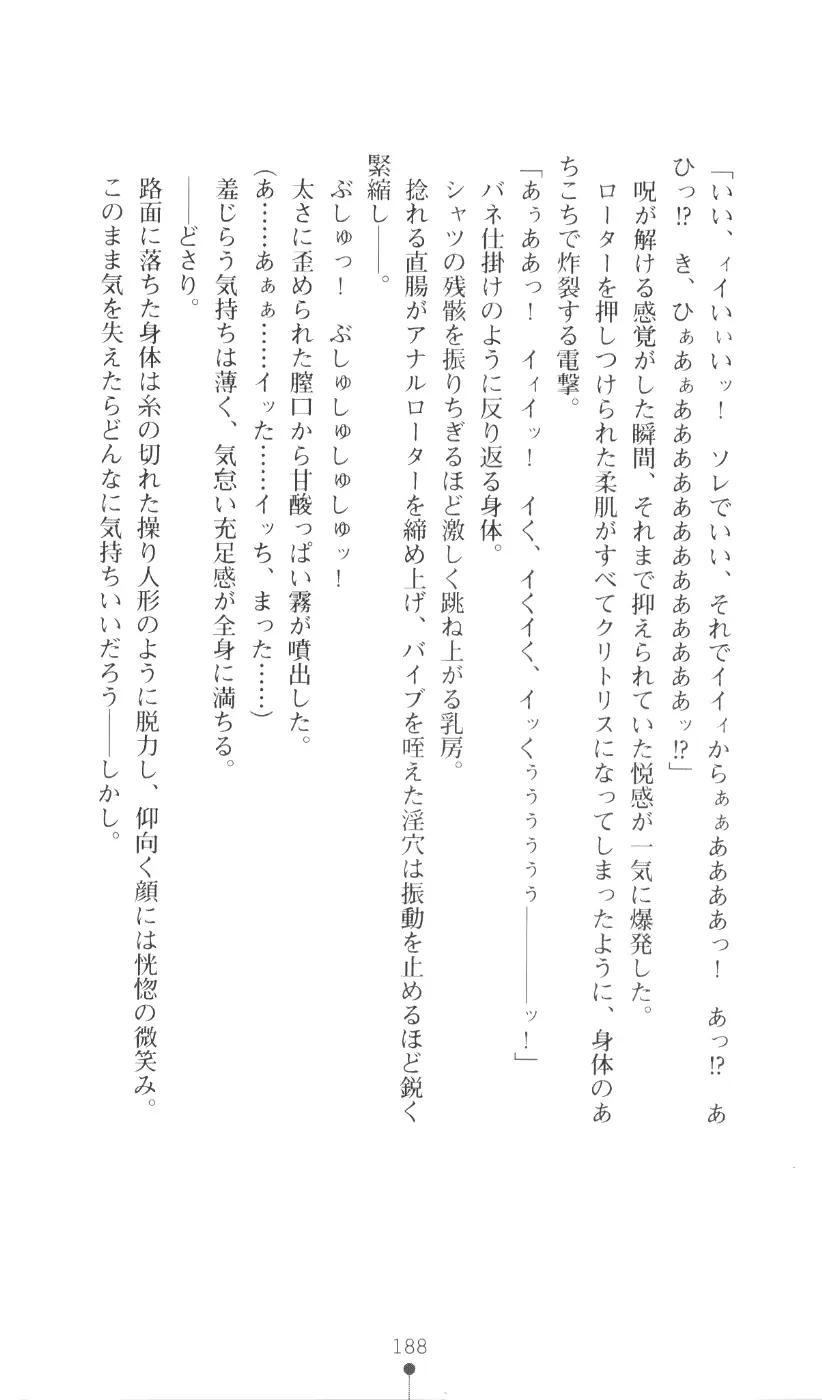 「いい、ィイいぃいッ！　ソレでいい、それでイイィからぁぁああああっ！　あっ!?　あ
ひっ!?　き、ひぁあぁあああああああああああああッ!?」
呪が解ける感覚がした瞬間、それまで抑えられていた悦感が一気に爆発した。
ローターを押しつけられた柔肌がすべてクリトリスになってしまったように、身体のあ
ちこちで炸裂する電撃。
「あぅああっ！　イィイッ！　イく、イくイく、イッくぅぅぅぅぅぅ――――ッ！」
バネ仕掛けのように反り返る身体。
シャツの残骸を振りちぎるほど激しく跳ね上がる乳房。
捻れる直腸がアナルローターを締め上げ、バイブを咥えた淫穴は振動を止めるほど鋭く
緊縮し――。
ぶしゅっ！　ぶしゅしゅしゅしゅッ！
太さに歪められた膣口から甘酸っぱい霧が噴出した。
(あ……あぁぁ……イッた……イッち、まった……)
羞じらう気持ちは薄く、気怠い充足感が全身に満ちる。
――どさり。
路面に落ちた身体は糸の切れた操り人形のように脱力し、仰向く顔には恍惚の微笑み。
このまま気を失えたらどんなに気持ちいいだろう――しかし。
188